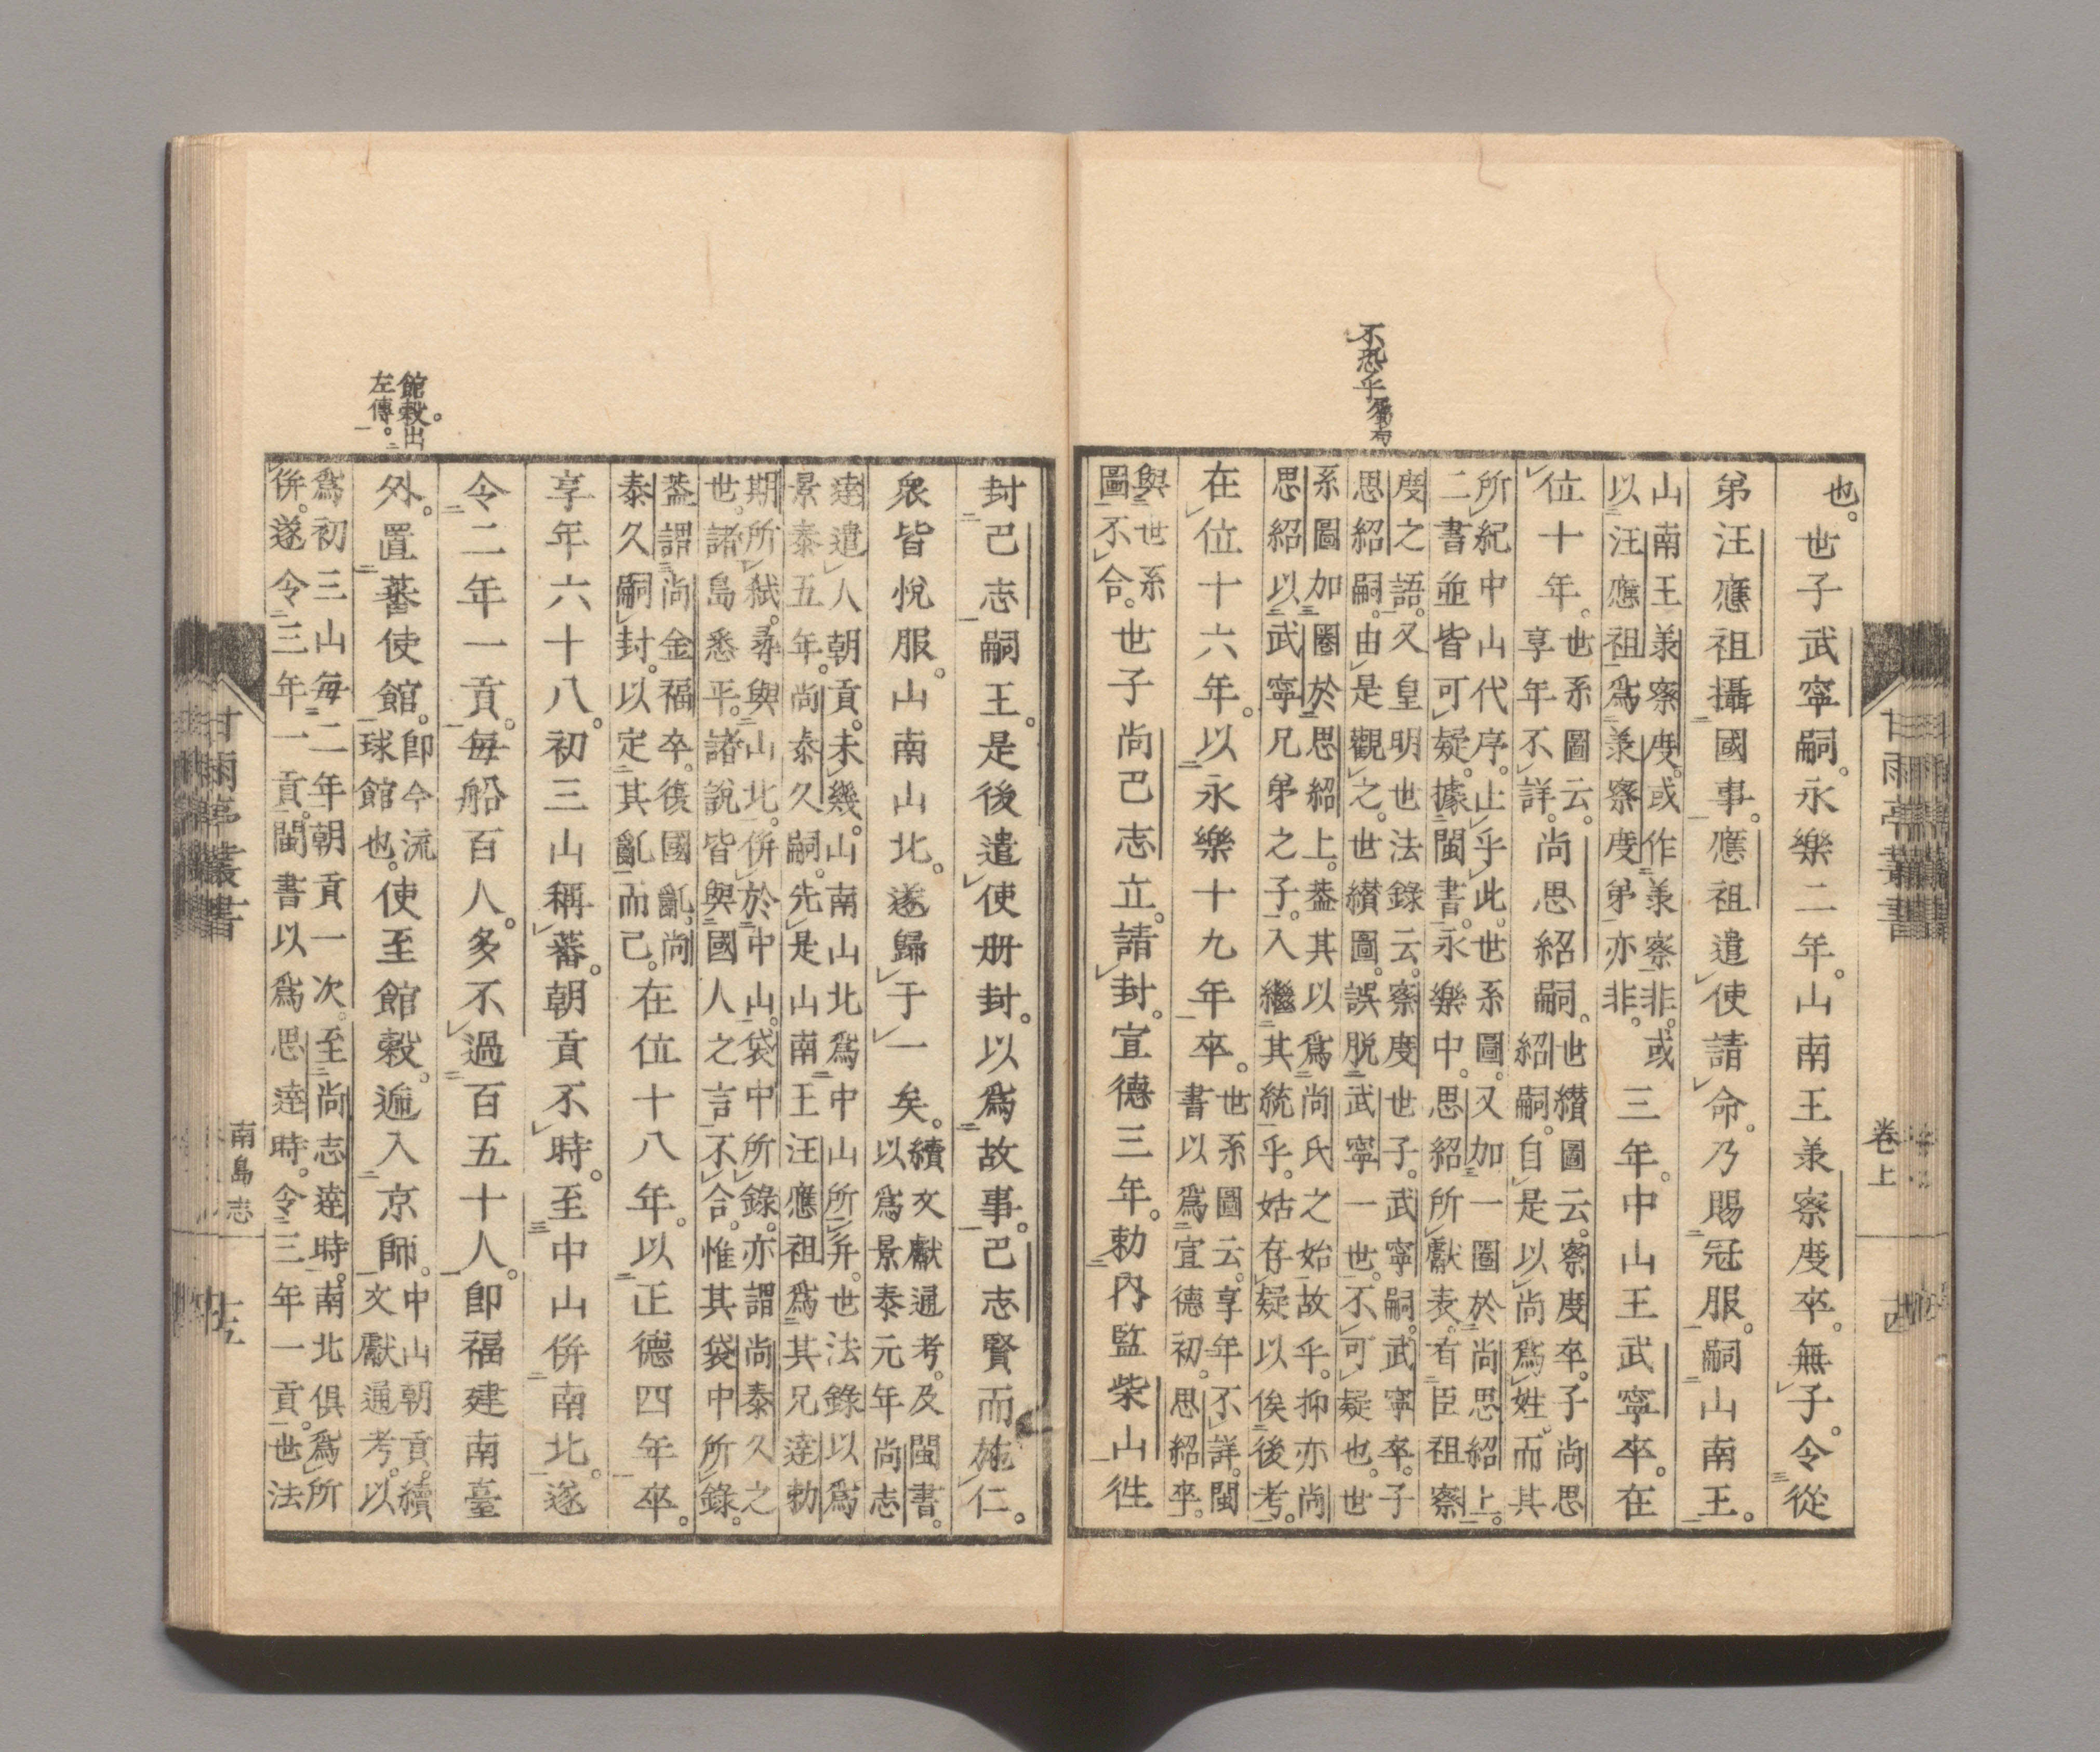 也。世子武寧嗣。永樂二年。山南王羕察度卒。無子。令從
弟汪應祖攝國事。應祖遣使請命。乃賜冠服。嗣山南王。
山南王羕察度。或作羕察非。或
以汪應祖爲羕察度弟亦非。
三年。中山王武寧卒。在
位十年。
世系圖云。
享年不詳。
尚思紹嗣。
世纉圖云。察度卒。子尚思
紹嗣。自是以尚爲姓。而其
所紀中山代序。止乎此。世系圖。又加一圈於尚思紹上。
二書並皆可疑。據閩書。永樂中。思紹所獻表。有臣祖察
不恐乎
度之語。又皇明世法錄云。察度世子。武寧嗣。武寧卒。子
思紹嗣。由是觀之。世纉圖。誤脱武寧一世。不可疑也。世
系圖加圈於思紹上。蓋其以爲尚氏之始故乎。抑亦尚
思紹以武寧兄弟之子。入繼其統乎。姑存疑以俟後考。
在位十六年。以永樂十九年卒。
世系圖云。享年不詳。閩
書以爲宣德初。思紹卒。
與世系
圖不合。
世子尚己志立。請封。宣德三年。勅內監柴山徃
甘雨亭叢書
卷上
封己志嗣王。是後遣使册封。以爲故事。己志賢而施仁。
衆皆悅服。山南山北。遂歸于一矣。
續文獻通考。及閩書。
以爲景泰元年尚志
達遣人朝貢。未幾。山南山北爲中山所并。世法錄以爲
景泰五年。尚泰久嗣。先是山南王汪應祖爲其兄達勃
期所弑。尋與山北。併於中山。袋中所錄。亦謂尚泰久之
世。諸島悉平。諸說皆與國人之言不合。惟其袋中所錄。
蓋謂尚金福卒。後國亂。尚
泰久嗣封。以定其亂而已。
在位十八年。以正德四年卒。
享年六十八初三山稱蕃。朝貢不時。至中山併南北。遂
令二年一貢。每船百人。多不過百五十人。卽福建南臺
館穀。出
左傳。
外。置蕃使館。
卽今流
球館也。
使至館穀。迤入京師。
中山朝貢。續
文獻通考。以
爲初三山每二年朝貢一次。至尚志達時。南北俱爲所
併。遂令三年一貢。閩書以爲思達時。令三年一貢。世法
甘雨亭叢書
南島志
十五